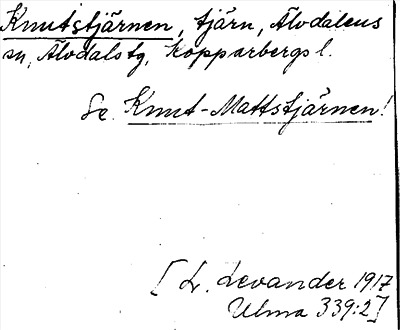 Knutstjärnen, tjärn, Älvdalens
sn, Älvdals tg, Kopparbergs l.
Se Knut-Mattstjärnen!
[L. Levander 1917
Ulma 339:2]